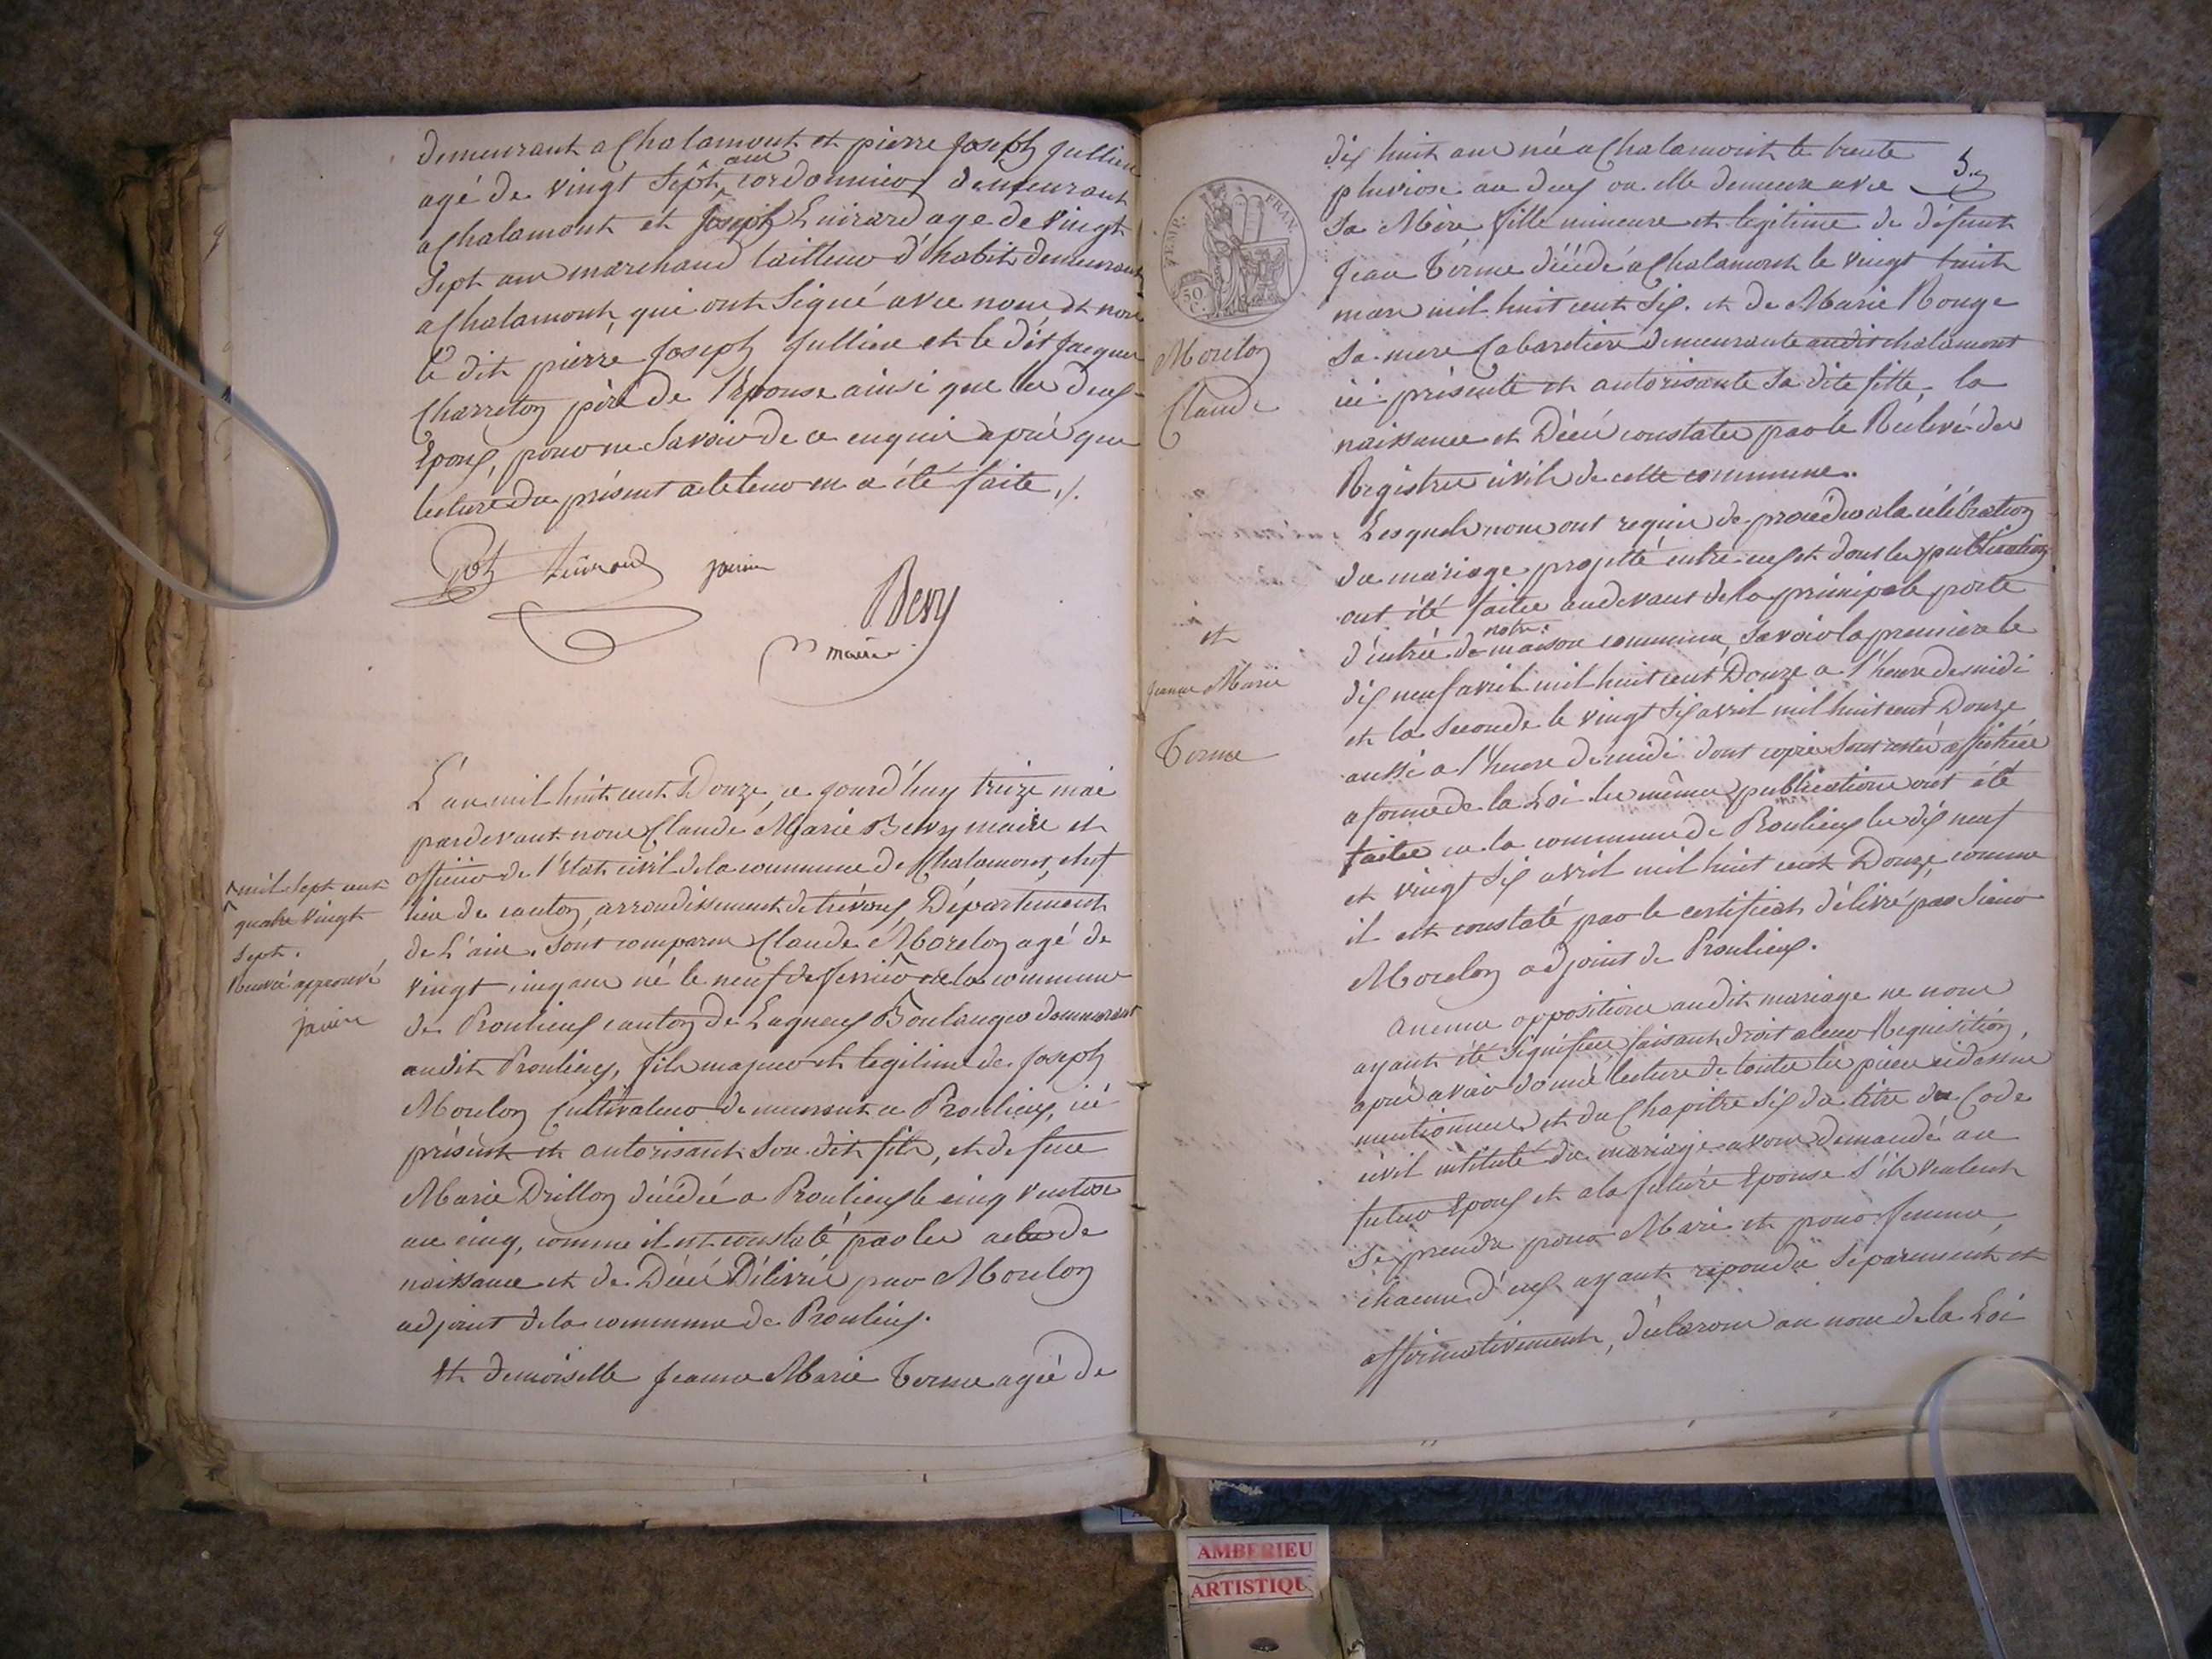 demeurant a Chalamont et pierre Joseph Jullien
agé de vingt Sept ans cordonnier demeurant
a Chalamont et Joseph Guirard age de vingt
Sept ans marchand tailleur d'habit demeurant
a Chalamont, qui ont Signé avec nous et non
le dit pierre Joseph Jullien et le dit Jacques
Charreton père de l'Epouse ainsi que les deux
Epoux, pour ne Savoir de ce enquis après que
lecture du présent acte leur en a été faite ./.
janin
Bevy
maire
L'an mil huit cent Douze, ce jourd'huy treize mai
pardevant nous Claude Marie Bevy maire et
officier de l'Etat civil de la commune de Chalamont, chef
lieu de canton, arrondissement de trévoux, Département
de L'ain. Sont comparus Claude Morelon agé de
vingt cinq ans né le neuf de fevrier ^ de la commune
de Proulieux canton de Lagneux Boulanger demeurant
audit Proulieux, fils majeur et legitime de Joseph
Morelon Cultivateur demeurant a Proulieux, ici
présent et autorisant Son dit fils, et de feue
Marie Drillon décédée a Proulieux le cinq ventose
an cinq, comme il est constaté par les actes de
naissance et de Décès Délivrés par Morelon
adjoint de la commune de Proulieux.
Et demoiselle Jeanne Marie Terme agée de
^ mil Sept cent
quatre vingt
Sept.
Renvoi approuvé
janin
5.
TIMP. FRAN.
50 C.
Morelon
Claude
et
Jeanne Marie
Terme
dix huit ans née a Chalamont le trente
pluviose an deux ou elle demeure avec
Sa Mère fille mineure et legitime de défunt
Jean Terme décédé a Chalamont le vingt huit
mars mil huit cent Six. et de Marie Rouge
Sa mere Cabaretière demeurante audit chalamont
ici présente et autorisante Sa dite fille, la
naissance et Décès constatés par le Relevé des
Registres civils de cette commune.
Lesquels nous ont requis de procéder a la célébration
du mariage projetté entre eux et dont les publications
ont été faites audevant de la principale porte
d'entrée de notre maison commune, Savoir la premiere le
dix neuf avril mil huit cent Douze a l'heure de midi
et la Seconde le vingt Six avril mil huit cent Douze
aussi a l'heure de midi dont copies Sont restés affichées
a forme de la Loi les mêmes publications ont été
faites en la commune de Proulieux les dix neuf
et vingt Six avril mil huit cent Douze, comme
il est constaté par le certificat délivré par Sieur
Morelon adjoint de Proulieux.
Aucune opposition audit mariage ne nous
ayant été Signifiée, faisant droit a leur Requisition,
après avoir donné lecture de toutes les pièces cidessus
mentionnées et du Chapitre Six du titre du Code
civil intitulé du mariage avons demandé au
futur Epoux et a la future Epouse S'ils veulent
Se prendre pour Mari et pour femme,
chacun d'eux ayant repondu Séparement et
affirmativement, déclarons au nom de la Loi
AMBERIEU
ARTISTIQU